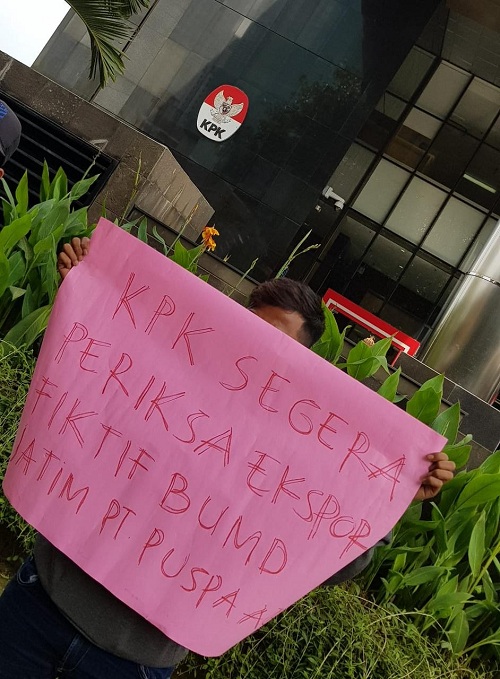 KPK
KPK SEGERA
PERIKSA EKSPOR
FIKTIF BUMD
JATIM PT PUSPA A